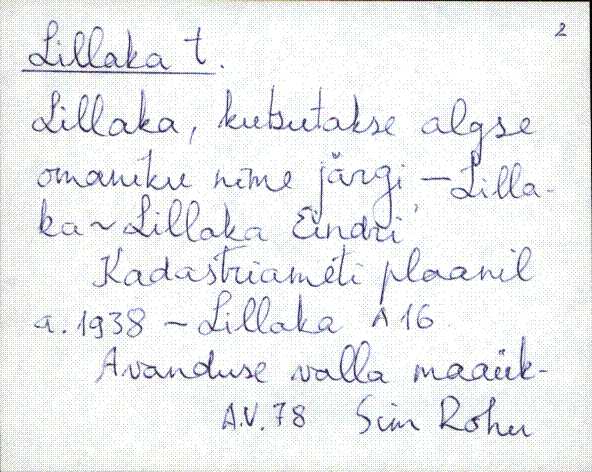 2
Lillaka t.
Lillaka, kutsutakse algse
omaniku nime järgi, – Lilla-
ka ~ Lillaka Eindri
Kadastriameti plaanil
a. 1938 – Lillaka A 16
Avanduse valla maaük-
A.V. 78 Siim Rohu